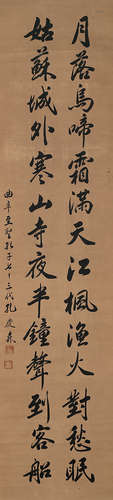 月落烏啼霜滿天江楓漁火對愁眠
姑蘇城外寒山寺夜半鐘聲到客船
曲阜至聖孔子七十三代孔慶